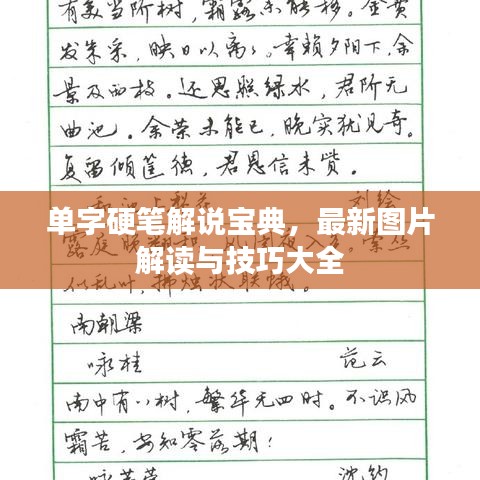 有美当阶树，霜露未能移。金黄
发朱采，映日以离〻。幸赖夕阳下，余
景及西枝。还思照绿水，君阶无
曲池。余荣未能已，晚实犹见奇。
复留倾筐德，君恩信未赀。
刘绘
单字硬笔解说宝典，最新图片
解读与技巧大全
似乱叶，拂烛状联蛾。
南朝梁
咏桂 范云
南中有八树，繁华无四时。不识风
霜苦，安知零落期！
沈约